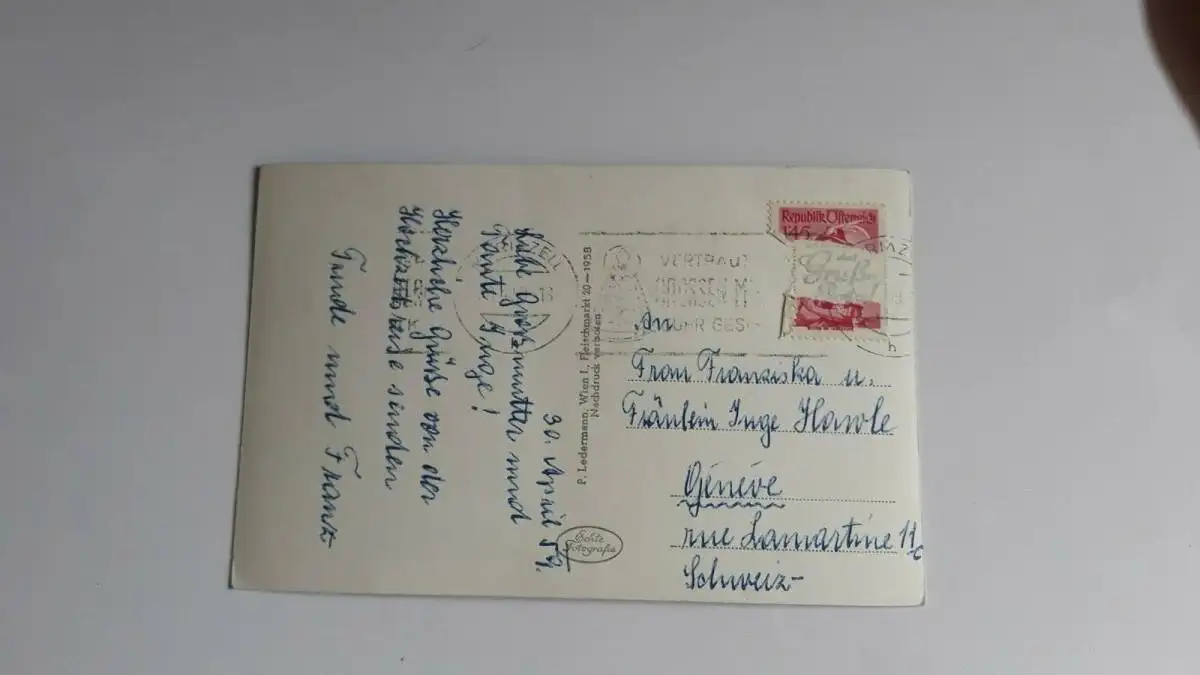 30. April 59.
Liebe Großmutter und
Tante Inge!
Herzliche Grüße von der
Hochzeitsreise senden
Trude und Franz
P. Ledermann, Wien I, Fleischmarkt 20—1958
Nachdruck verboten
Echte
Fotografie
Republik Österreich
1.45
ZELL
VERTRAUT
GROSSEN M
GES
An
Frau Franziska u.
Fräulein Inge Hawle
Genève
rue Lamartine 11c
Schweiz-